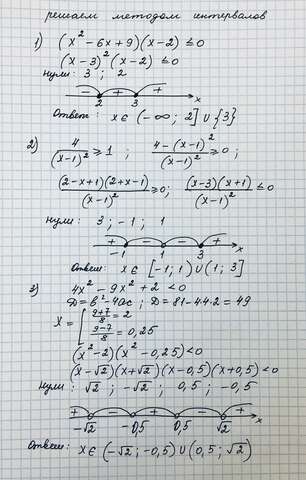 решаем методом интервалов
1) (x² - 6x + 9)(x - 2) ≤ 0
(x - 3)² (x - 2) ≤ 0
нули: 3 ; 2
- + +
2 3 x
Ответ: x ∈ (-∞; 2] ∪ {3}
2) 4/(x-1)² ≥ 1 ; (4 - (x-1)²)/(x-1)² ≥ 0 ;
((2-x+1)(2+x-1))/(x-1)² ≥ 0; ((x-3)(x+1))/(x-1)² ≤ 0
нули: 3 ; -1 ; 1
+ - - +
-1 1 3 x
Ответ: x ∈ [-1; 1) ∪ (1; 3]
3) 4x⁴ - 9x² + 2 < 0
D = b² - 4ac ; D = 81 - 4·4·2 = 49
x = [ (9+7)/8 = 2
(9-7)/8 = 0,25
(x² - 2)(x² - 0,25) < 0
(x - √2)(x + √2)(x - 0,5)(x + 0,5) < 0
нули: √2 ; -√2 ; 0,5 ; -0,5
+ - + - +
-√2 -0,5 0,5 √2 x
Ответ: x ∈ (-√2; -0,5) ∪ (0,5; √2)